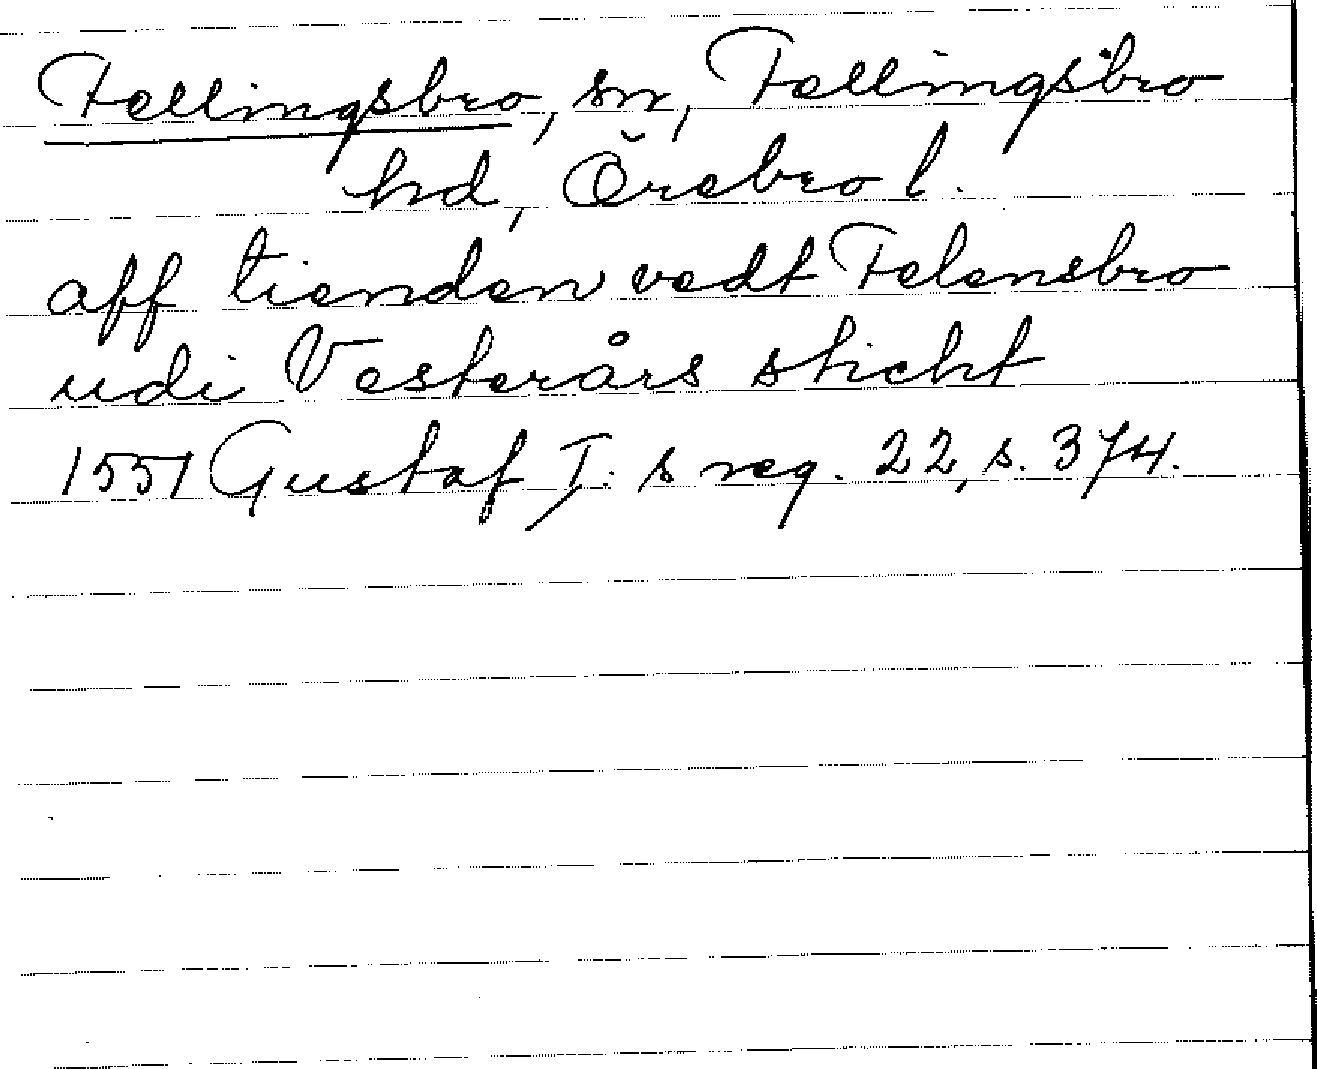 Fellingsbro, sn, Fellingsbro
hd, Örebro l.
aff tienden vedt Felensbro
udi Vesterårs sticht
1551 Gustaf I: s reg. 22, s. 374.